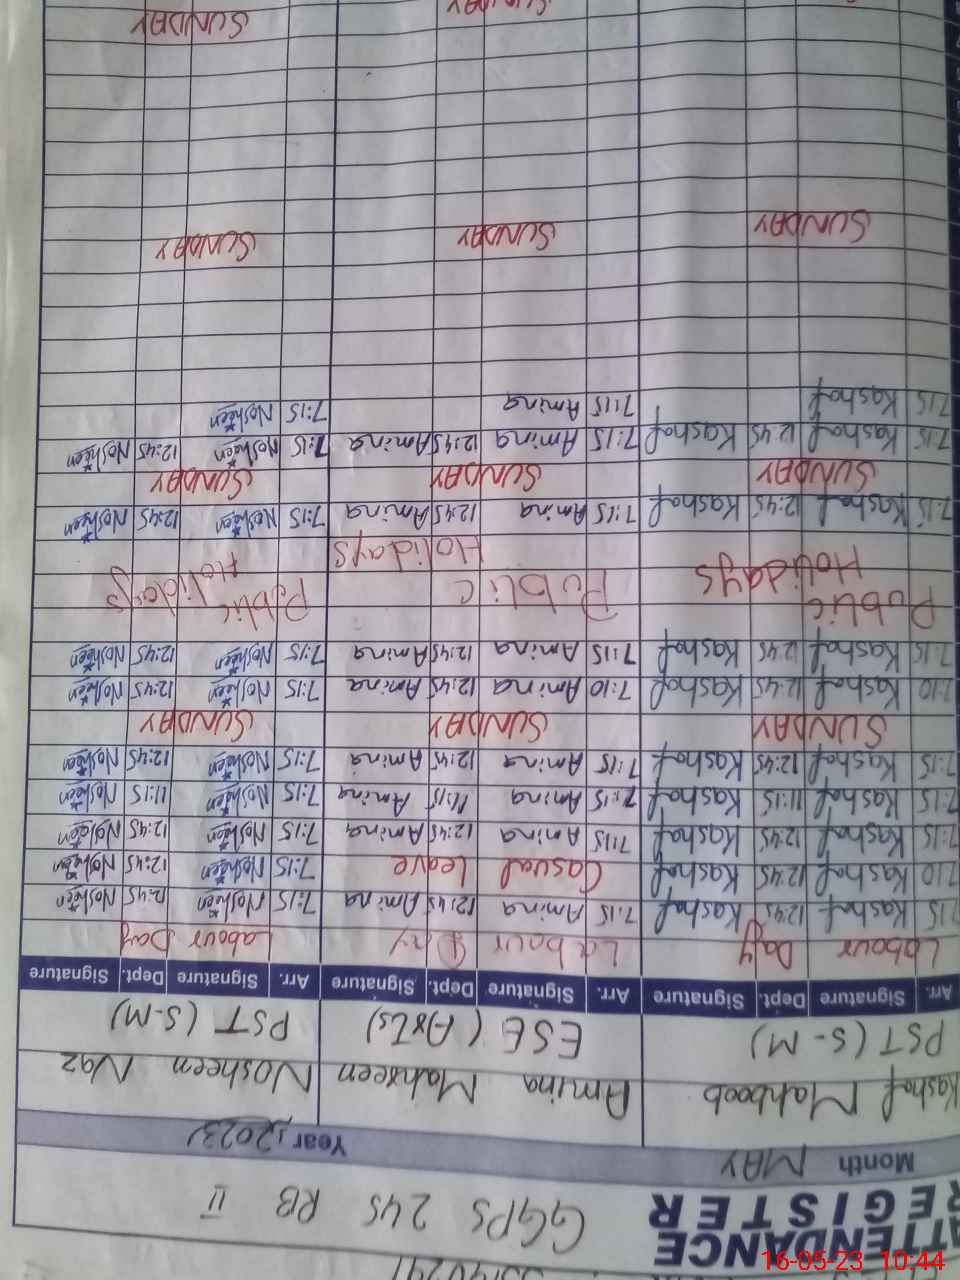 ATTENDANCE REGISTER GGPS 245 RB II
Month MAY Year 2023
Kashaf Mahboob Amina Mahreen Nosheen Naz
PST (S-M) ESE (Arts) PST (S-M)
Arr. Signature Dept. Signature Arr. Signature Dept. Signature Arr. Signature Dept. Signature
Labour Day Labour Day Labour Day
7:15 Kashaf 12:45 Kashaf 7:15 Amina 12:45 Amina 7:15 Nosheen 12:45 Nosheen
7:10 Kashaf 12:45 Kashaf Casual Leave 7:15 Nosheen 12:45 Nosheen
7:15 Kashaf 12:45 Kashaf 7:15 Amina 12:45 Amina 7:15 Nosheen 12:45 Nosheen
7:15 Kashaf 11:15 Kashaf 7:15 Amina 11:15 Amina 7:15 Nosheen 11:15 Nosheen
7:15 Kashaf 12:45 Kashaf 7:15 Amina 12:45 Amina 7:15 Nosheen 12:45 Nosheen
SUNDAY SUNDAY SUNDAY
7:10 Kashaf 12:45 Kashaf 7:10 Amina 12:45 Amina 7:15 Nosheen 12:45 Nosheen
7:15 Kashaf 12:45 Kashaf 7:15 Amina 12:45 Amina 7:15 Nosheen 12:45 Nosheen
Public Public Public
Holidays Holidays Holidays
7:15 Kashaf 12:45 Kashaf 7:15 Amina 12:45 Amina 7:15 Nosheen 12:45 Nosheen
SUNDAY SUNDAY SUNDAY
7:15 Kashaf 12:45 Kashaf 7:15 Amina 12:45 Amina 7:15 Nosheen 12:45 Nosheen
7:15 Kashaf 7:15 Amina 7:15 Nosheen
SUNDAY SUNDAY SUNDAY
SUNDAY SUNDAY
16-05-23 10:44